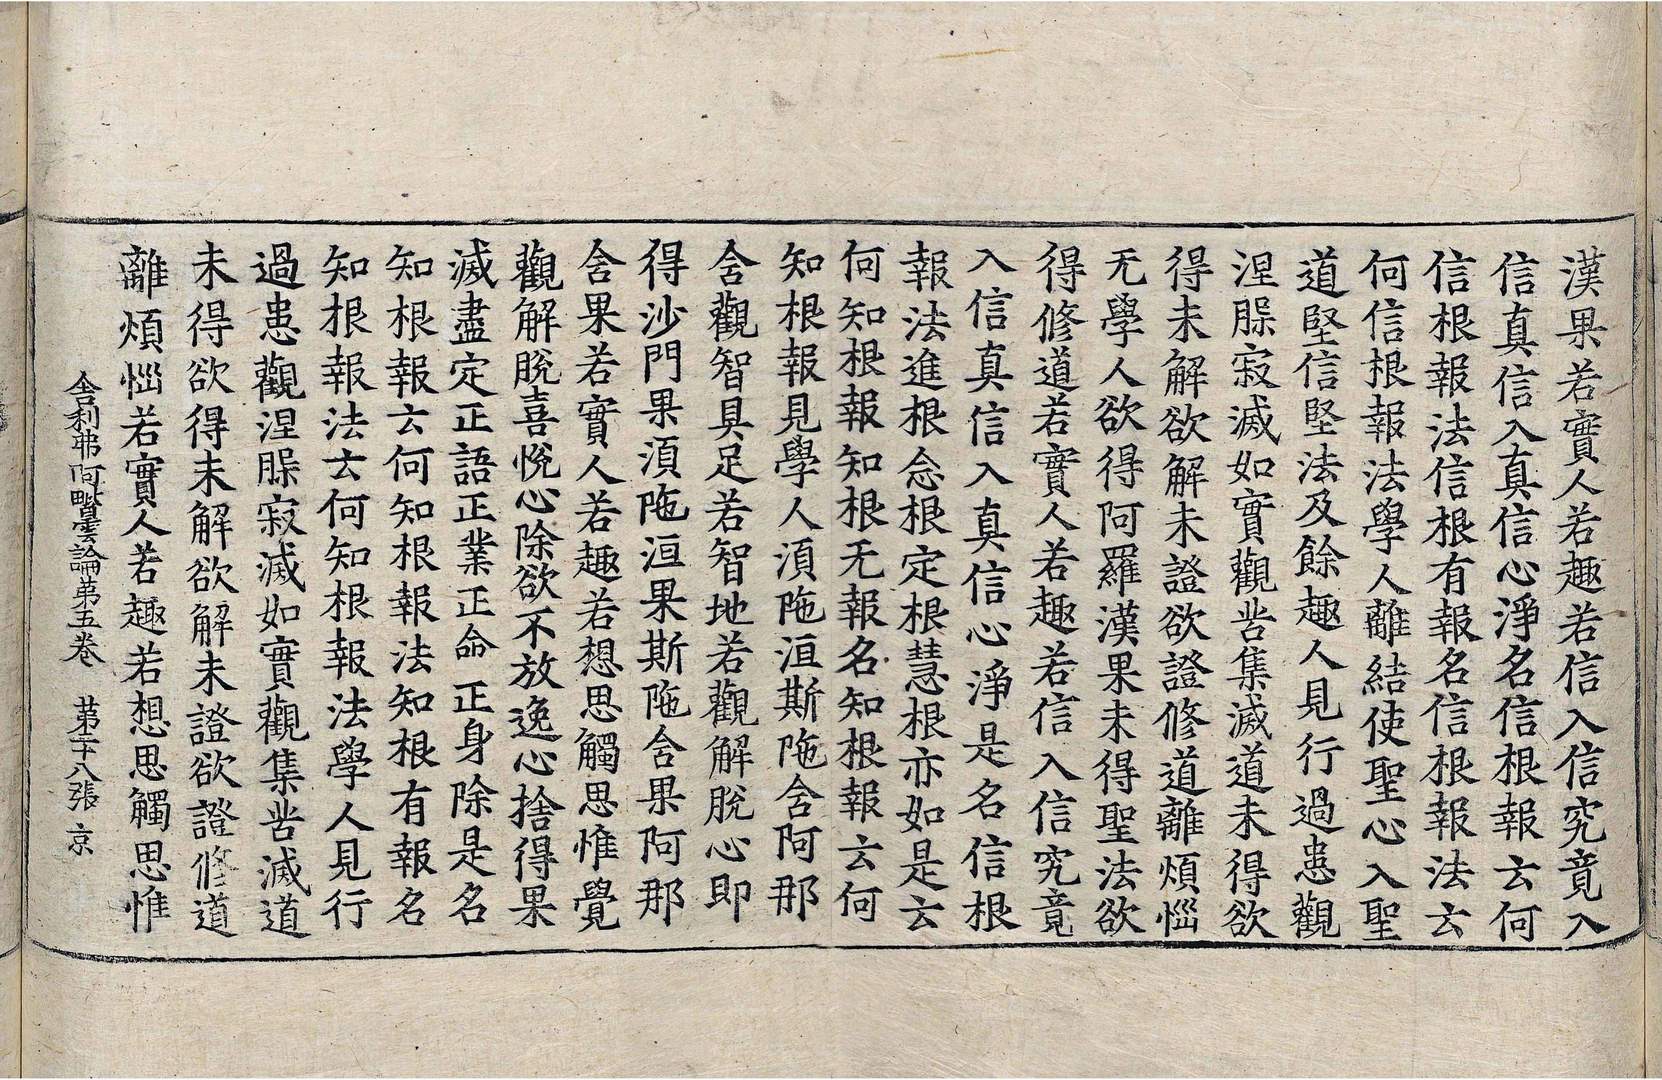 漢果若實人若趣若信入信究竟入
信真信入真信心淨名信根報云何
信根報法信根有報名信根報法云
何信根報法學人離結使聖心入聖
道堅信堅法及餘趣人見行過患觀
涅脲寂滅如實觀苦集滅道未得欲
得未解欲解未證欲證修道離煩惱
无學人欲得阿羅漢果未得聖法欲
得修道若實人若趣若信入信究竟
入信真信入真信心淨是名信根
報法進根念根定根慧根亦如是云
何知根報知根无報名知根報云何
知根報見學人湏陁洹斯陁含阿那
含觀智具足若智地若觀解脫心即
得沙門果湏陁洹果斯陁含果阿那
含果若實人若趣若想思觸思惟覺
觀解脫喜悅心除欲不放逸心捨得果
滅盡定正語正業正命正身除是名
知根報云何知根報法知根有報名
知根報法云何知根報法學人見行
過患觀涅脲寂滅如實觀集苦滅道
未得欲得未解欲解未證欲證修道
離煩惱若實人若趣若想思觸思惟
舍利弗阿毗曇論第五卷 第二十八張 京